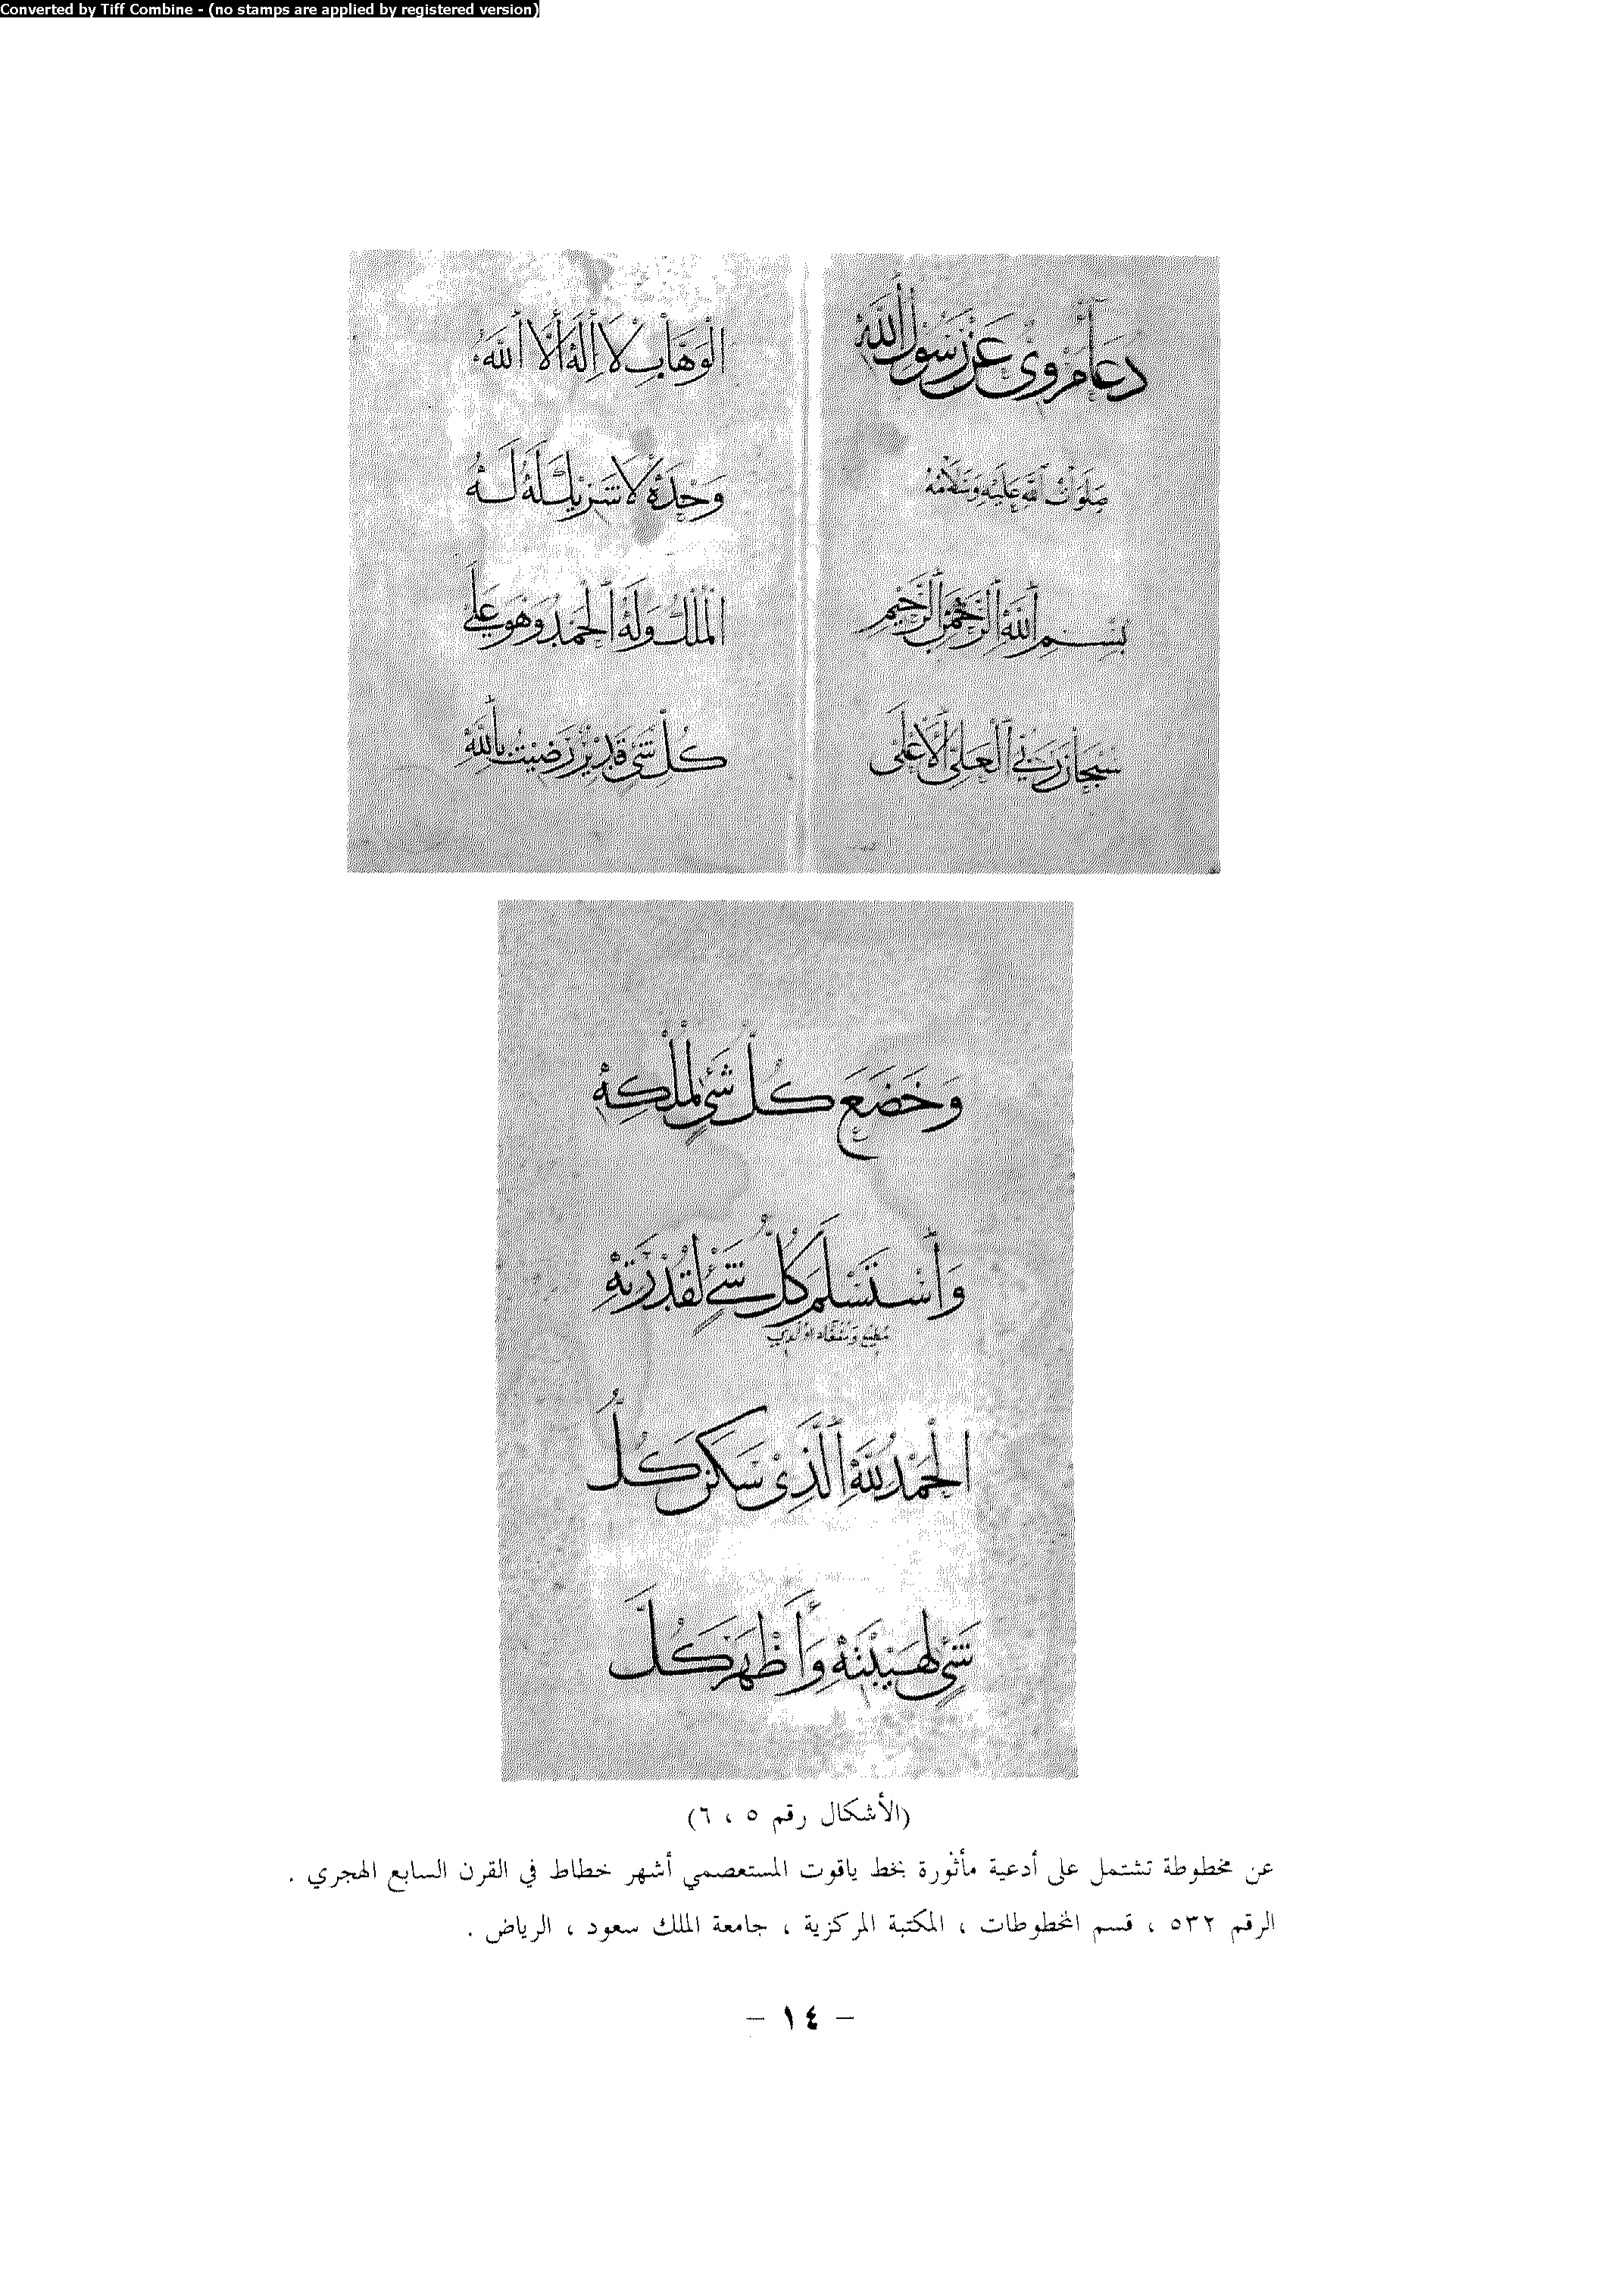 Converted by Tiff Combine - (no stamps are applied by registered version)
دعا مروى عن رسول الله
صلوات الله عليه وسلامه
بسم الله الرحمن الرحيم
سبحان ربي العلى الأعلى
الوهاب لا إله إلا الله
وحده لا شريك له له
الملك وله الحمد وهو على
كل شئ قدير رضيت بالله
وَخَضَعَ كُلُّ شَئٍ لِمُلْكِهِ
وَاسْتَسْلَمَ كُلُّ شَئٍ لِقُدْرَتِهِ
الْحَمْدُ لِلّهِ الَّذِى سَكَنَ كُلُّ
شَئٍ لِهَيْبَتِهِ وَأَظْهَرَ كُلَّ
(الأشكال رقم ٥ ، ٦)
عن مخطوطة تشتمل على أدعية مأثورة بخط ياقوت المستعصمي أشهر خطاط في القرن السابع الهجري .
الرقم ٥٣٢ ، قسم المخطوطات ، المكتبة المركزية ، جامعة الملك سعود ، الرياض .
– ١٤ –